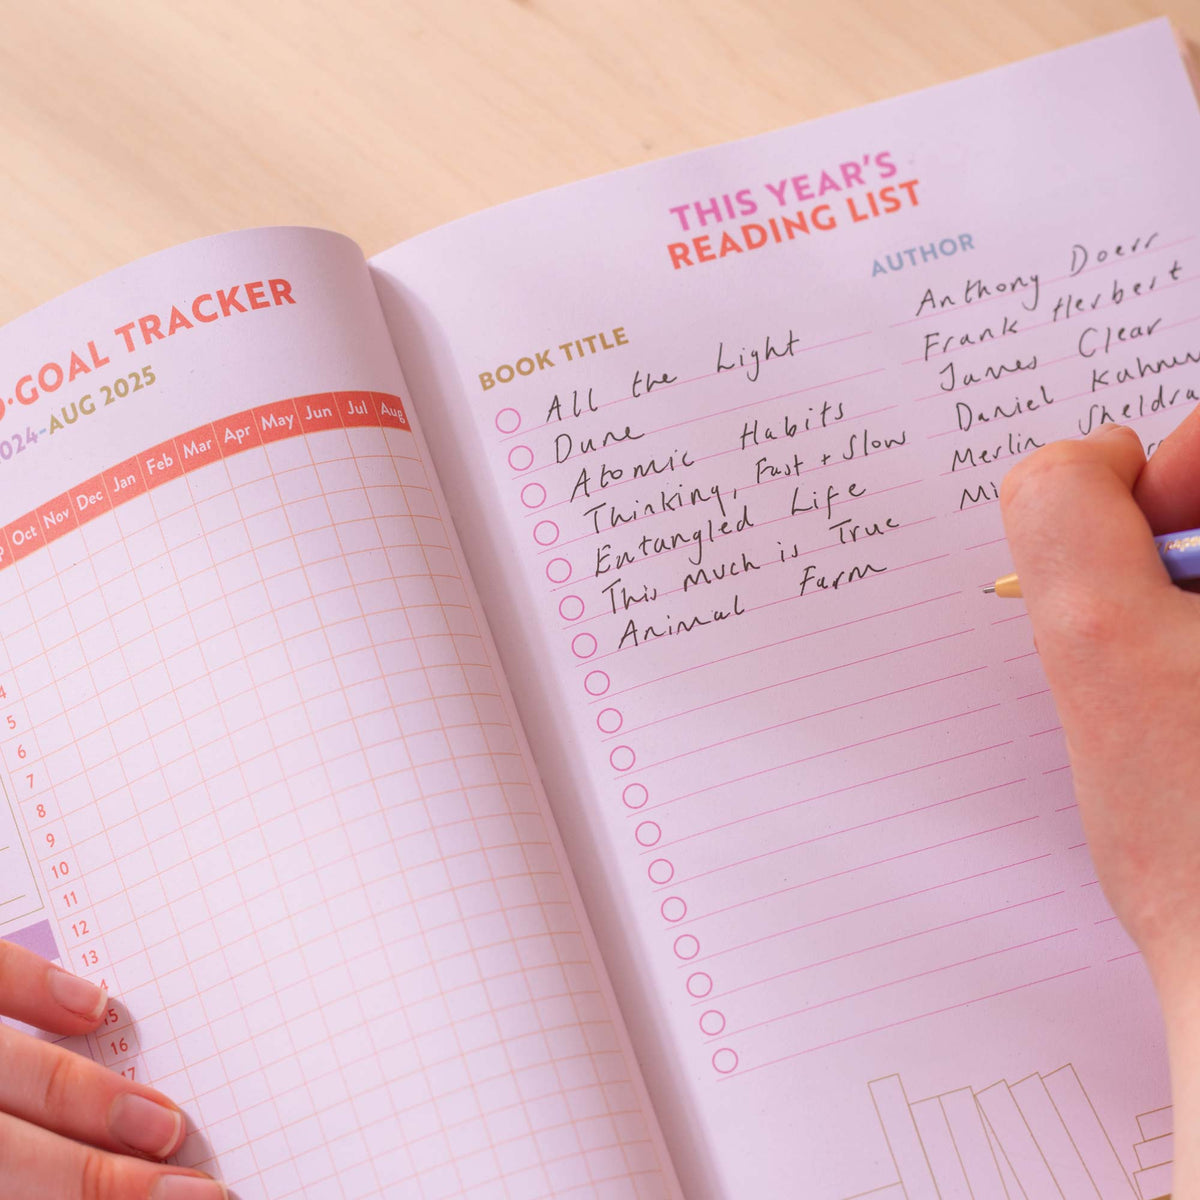 GOAL TRACKER
024-AUG 2025
Oct Nov Dec Jan Feb Mar Apr May Jun Jul Aug
4
5
6
7
8
9
10
11
12
13
4
15
16
17
THIS YEAR'S
READING LIST
BOOK TITLE AUTHOR
All the Light Anthony Doerr
Dune Frank Herbert
Atomic Habits James Clear
Thinking, Fast + Slow Daniel
Entangled Life Merlin
This Much is True
Animal Farm